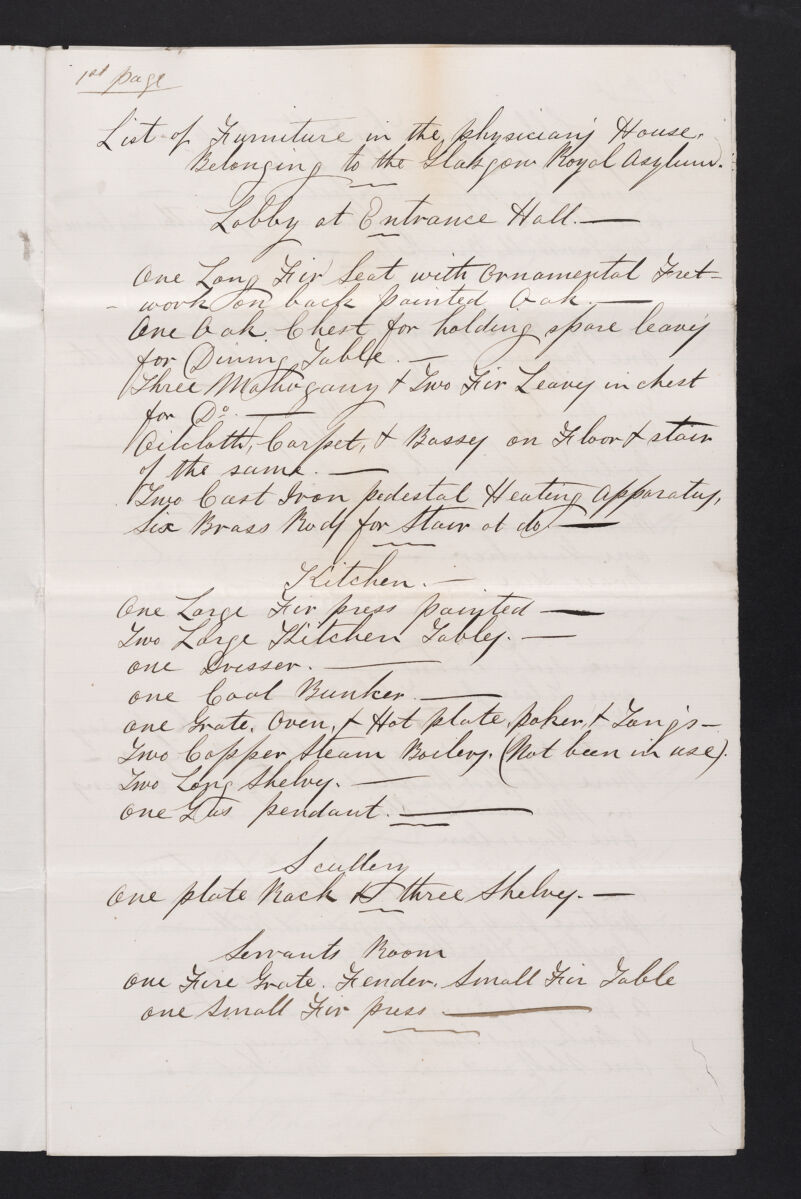 1st page
List of Furniture in the physician's House.
Belonging to the Glasgow Royal Asylum.
Lobby at Entrance Hall. —
One Long Fir Seat with Ornamental Fret-
work on back painted Oak. —
One Oak Chest for holding spare leaves
for Dining Table. —
Three Mahogany & Two Fir Leaves in chest
for Do. —
Oilcloth, Carpet, & Basses on Floor & stair
of the same. —
Two Cast Iron pedestal Heating Apparatus,
Six Brass Rods for Stair at do —
Kitchen. —
One Large Fir press painted —
Two Large Kitchen Tables. —
one Dresser. —
one Coal Bunker. —
one Grate, Oven, & Hot plate, poker, & Tongs —
Two Copper Steam Boilers. (Not been in use).
Two Long Shelves. —
one Gas pendant. —
Scullery
One plate Rack & three Shelves. —
Servants Room
one Fire Grate. Fender. Small Fir Table
one Small Fir press. —